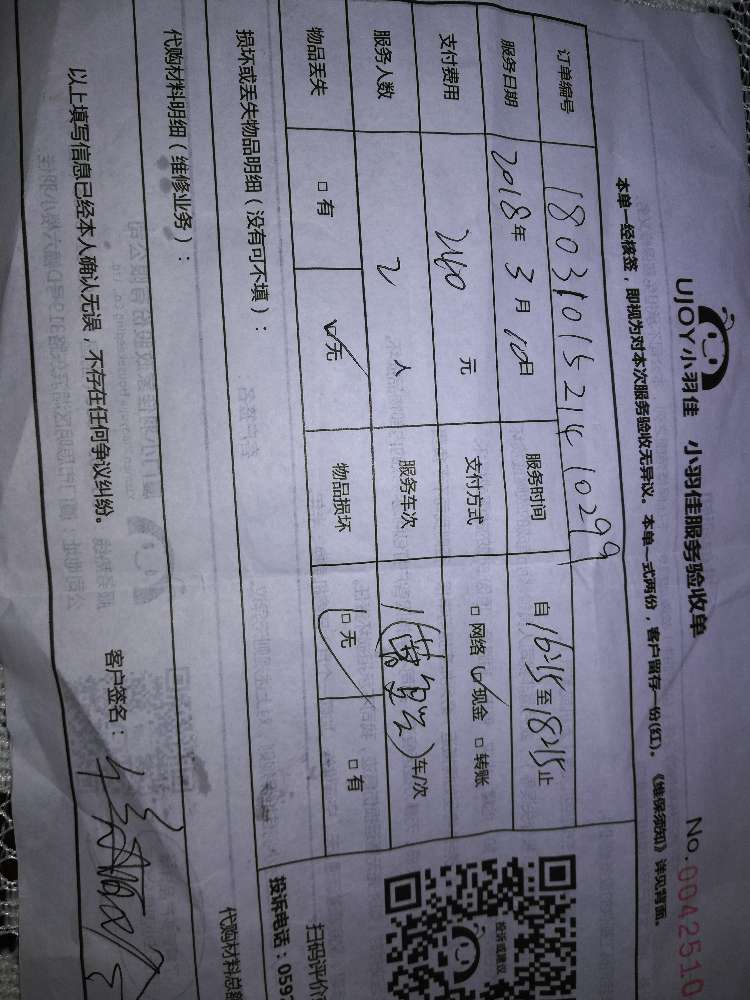 UJOY小羽佳 小羽佳服务验收单
No.0042510
本单一经核签，即视为对本次服务验收无异议。本单一式两份，客户留存一份(红)。《维保须知》详见背面。
订单编号 1803101521410299
服务日期 2018年3月10日 服务时间 自16:15至18:15止
支付费用 240元 支付方式 □网络 ☑现金 □转账
服务人数 2人 服务车次 1 车/次
物品丢失 □有 ☑无 物品损坏 □无 □有
损坏或丢失物品明细（没有可不填）：
代购材料明细（维修业务）：
代购材料总额
以上填写信息已经本人确认无误，不存在任何争议纠纷。 客户签名：
投诉或建议
扫码评价
投诉电话：059